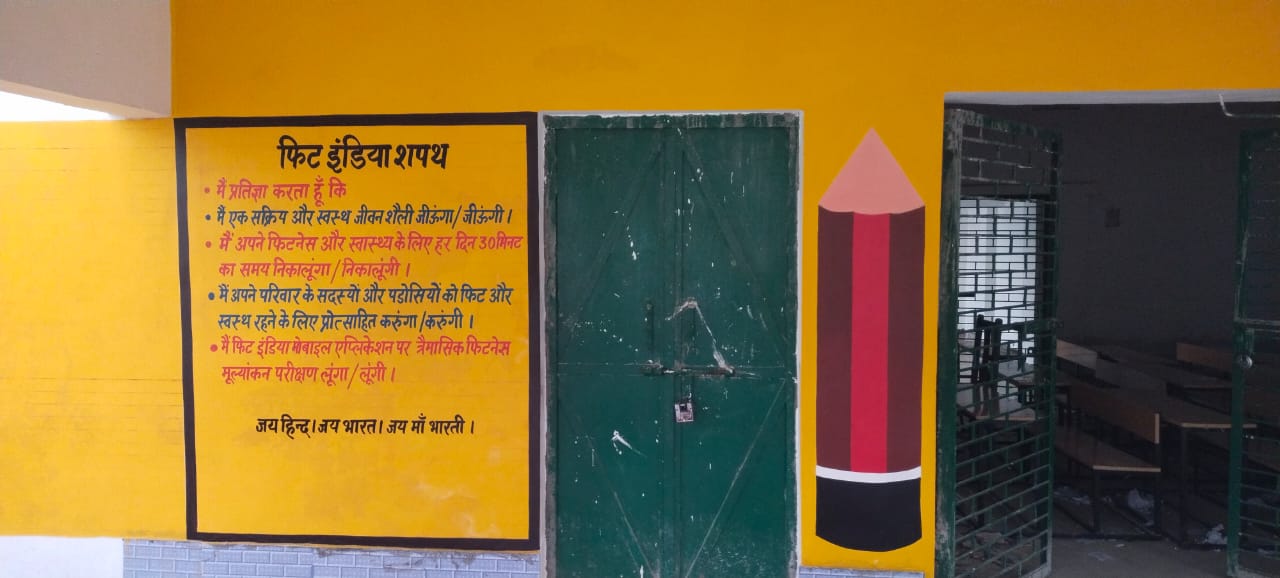 फिट इंडिया शपथ
• मैं प्रतिज्ञा करता हूँ कि
• मैं एक सक्रिय और स्वस्थ जीवन शैली जीऊंगा/जीऊंगी।
• मैं अपने फिटनेस और स्वास्थ्य के लिए हर दिन 30 मिनट
का समय निकालूंगा/निकालूंगी।
• मैं अपने परिवार के सदस्यों और पडोसियों को फिट और
स्वस्थ रहने के लिए प्रोत्साहित करुंगा/करुंगी।
• मैं फिट इंडिया मोबाइल एप्लिकेशन पर त्रैमासिक फिटनेस
मूल्यांकन परीक्षण लूंगा/लूंगी।
जय हिन्द। जय भारत। जय माँ भारती।